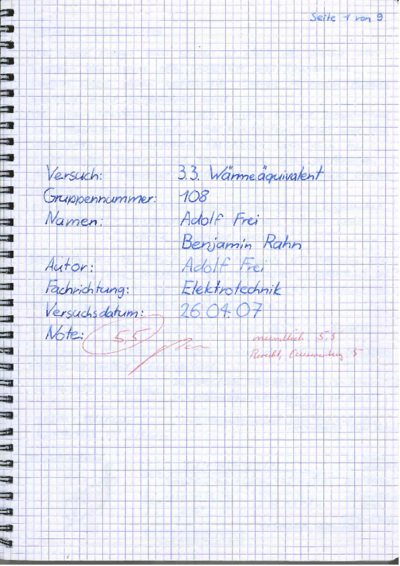 Seite 1 von 9
Versuch: 3.3. Wärmeäquivalent
Gruppennummer: 108
Namen: Adolf Frei
Benjamin Rahn
Autor: Adolf Frei
Fachrichtung: Elektrotechnik
Versuchsdatum: 26.04.07
Note: 5,5
mündlich 5,5
5